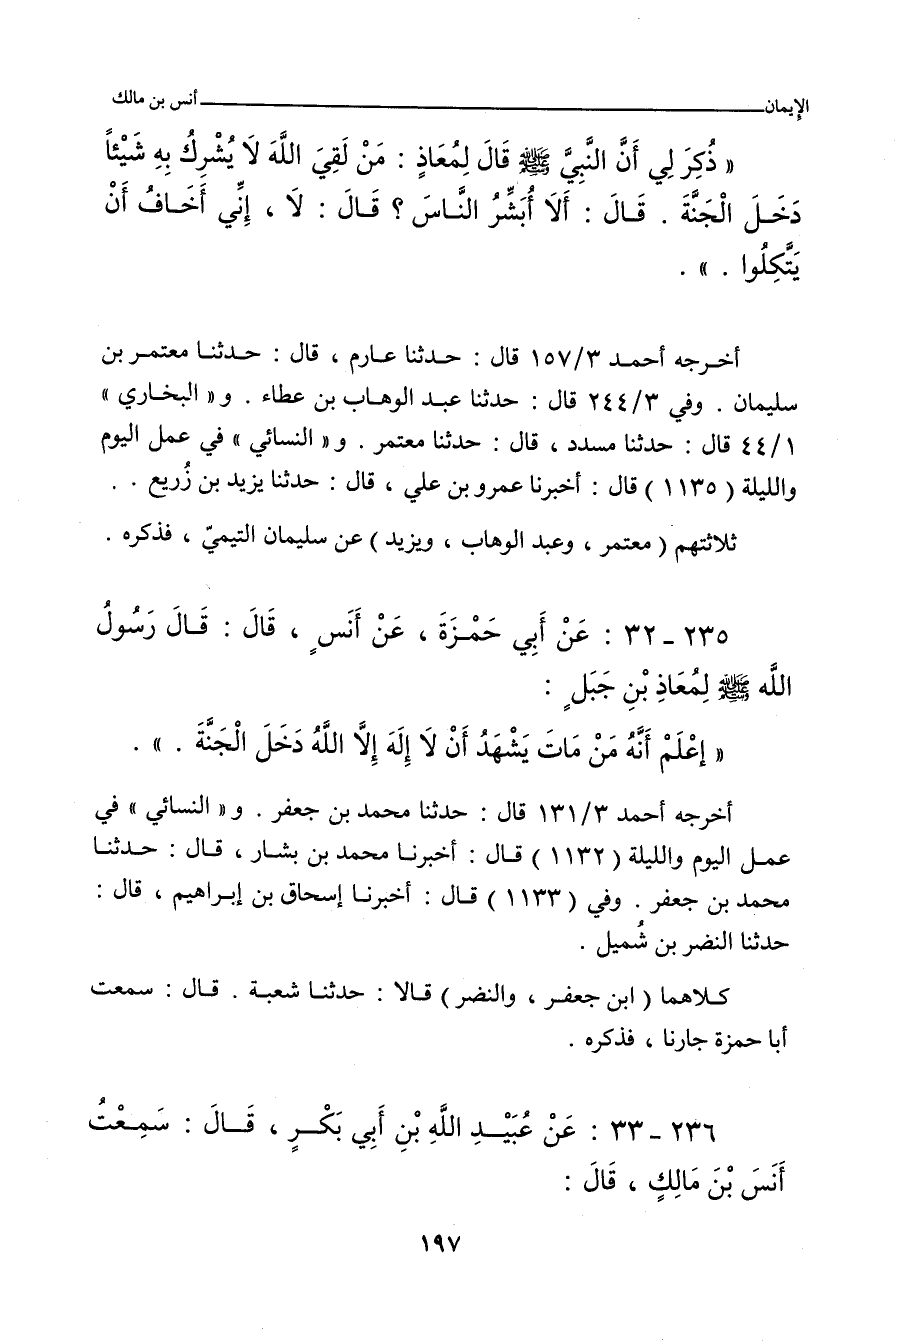 الإيمان ـــــــــــــــــــــــــــــــــ أنس بن مالك
« ذُكِرَ لِي أَنَّ النَّبِيَّ ﷺ قَالَ لِمُعَاذٍ : مَنْ لَقِيَ اللَّهَ لَا يُشْرِكُ بِهِ شَيْئاً
دَخَلَ الْجَنَّةَ . قَالَ : أَلَا أُبَشِّرُ النَّاسَ ؟ قَالَ : لَا ، إِنِّي أَخَافُ أَنْ
يَتَّكِلُوا . » .
أخرجه أحمد ١٥٧/٣ قال : حدثنا عارم ، قال : حدثنا معتمر بن
سليمان . وفي ٢٤٤/٣ قال : حدثنا عبد الوهاب بن عطاء . و« البخاري »
٤٤/١ قال : حدثنا مسدد ، قال : حدثنا معتمر . و« النسائي » في عمل اليوم
والليلة ( ١١٣٥ ) قال : أخبرنا عمرو بن علي ، قال : حدثنا يزيد بن زُريع . .
ثلاثتهم ( معتمر ، وعبد الوهاب ، ويزيد ) عن سليمان التيميّ ، فذكره .
٢٣٥ ـ ٣٢ : عَنْ أَبِي حَمْزَةَ ، عَنْ أَنَسٍ ، قَالَ : قَالَ رَسُولُ
اللَّه ﷺ لِمُعَاذِ بْنِ جَبَلٍ :
« إِعْلَمْ أَنَّهُ مَنْ مَاتَ يَشْهَدُ أَنْ لَا إِلَهَ إِلَّا اللَّهُ دَخَلَ الْجَنَّةَ . » .
أخرجه أحمد ١٣١/٣ قال : حدثنا محمد بن جعفر . و« النسائي » في
عمل اليوم والليلة ( ١١٣٢ ) قال : أخبرنا محمد بن بشار ، قال : حدثنا
محمد بن جعفر . وفي ( ١١٣٣ ) قال : أخبرنا إسحاق بن إبراهيم ، قال :
حدثنا النضر بن شُميل .
كلاهما ( ابن جعفر ، والنضر ) قالا : حدثنا شعبة . قال : سمعت
أبا حمزة جارنا ، فذكره .
٢٣٦ ـ ٣٣ : عَنْ عُبَيْدِ اللَّهِ بْنِ أَبِي بَكْرٍ ، قَالَ : سَمِعْتُ
أَنَسَ بْنَ مَالِكٍ ، قَالَ :
١٩٧